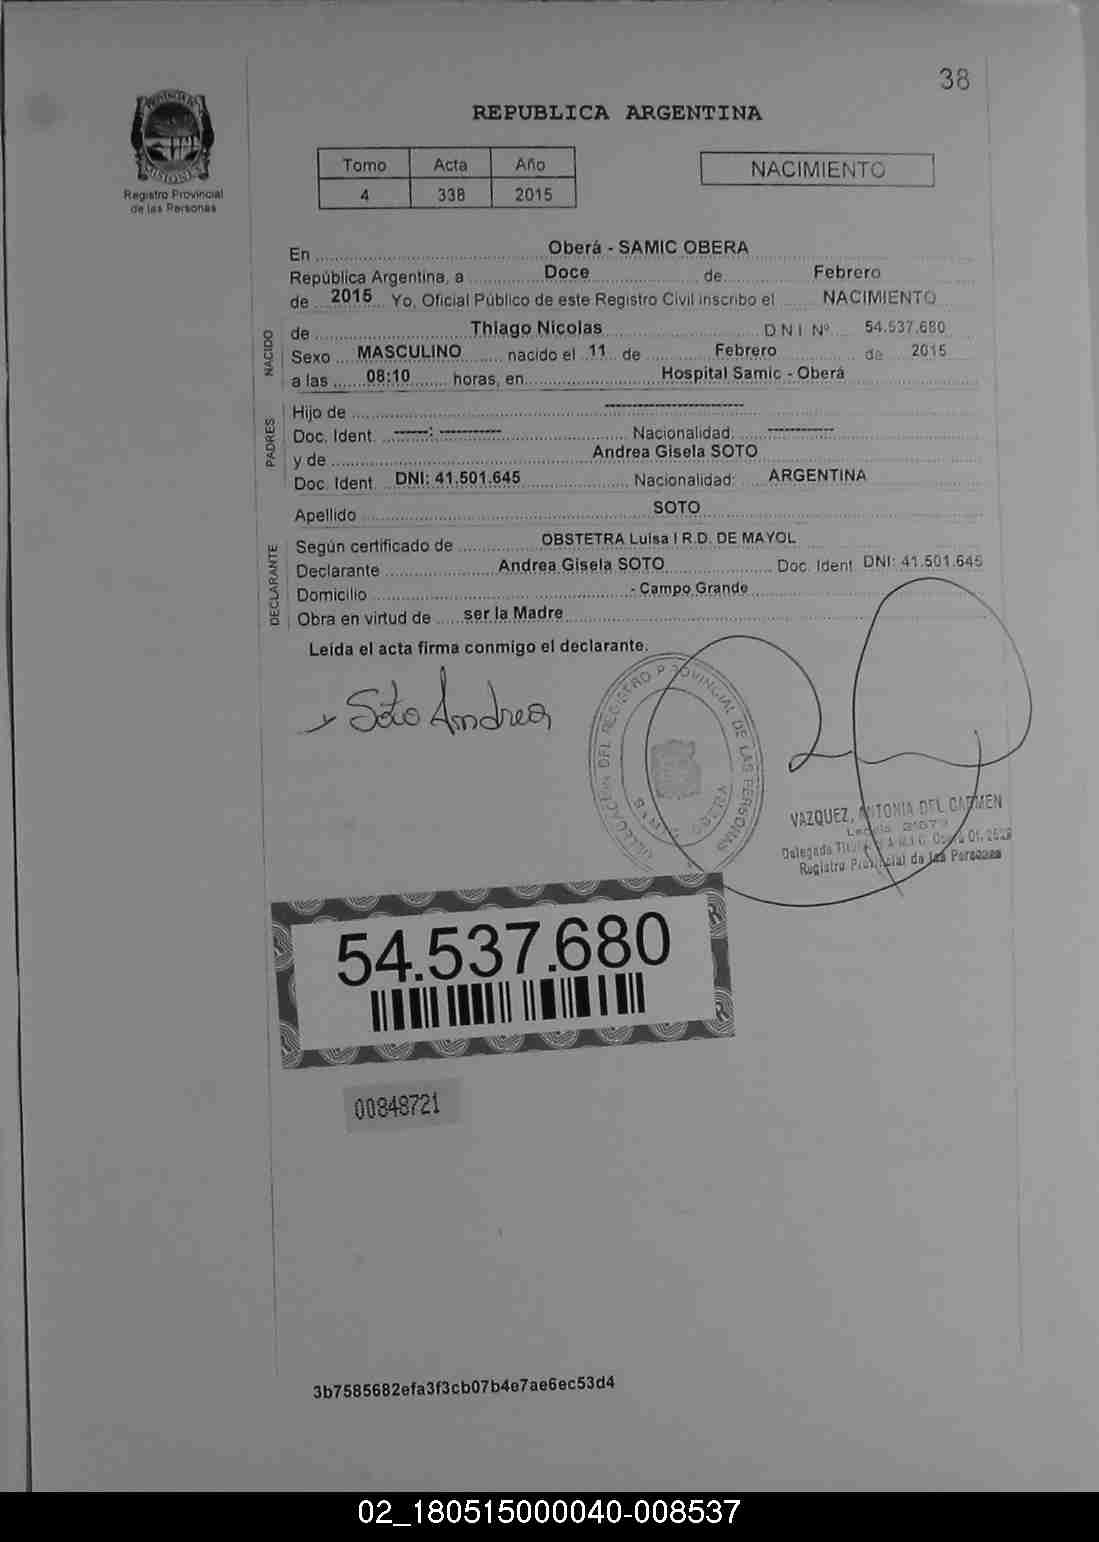 38
REPUBLICA ARGENTINA
Registro Provincial
de las Personas
Tomo Acta Año
4 338 2015
NACIMIENTO
En Oberá - SAMIC OBERA
República Argentina, a Doce de Febrero
de 2015 Yo, Oficial Público de este Registro Civil inscribo el NACIMIENTO
NACIDO
de Thiago Nicolas D N I Nº 54.537.680
Sexo MASCULINO nacido el 11 de Febrero de 2015
a las 08:10 horas, en Hospital Samic - Oberá
PADRES
Hijo de --------------------
Doc. Ident. -----: ---------- Nacionalidad: ----------
y de Andrea Gisela SOTO
Doc. Ident. DNI: 41.501.645 Nacionalidad: ARGENTINA
Apellido SOTO
DECLARANTE
Según certificado de OBSTETRA Luisa I R.D. DE MAYOL
Declarante Andrea Gisela SOTO Doc. Ident DNI: 41.501.645
Domicilio - Campo Grande
Obra en virtud de ser la Madre
Leída el acta firma conmigo el declarante.
Soto Andrea
DELEGACION DEL REGISTRO PROVINCIAL DE LAS PERSONAS
VAZQUEZ, ANTONIA DEL CARMEN
Registro Provincial de las Personas
54.537.680
00848721
3b7585682efa3f3cb07b4e7ae6ec53d4
02_180515000040-008537